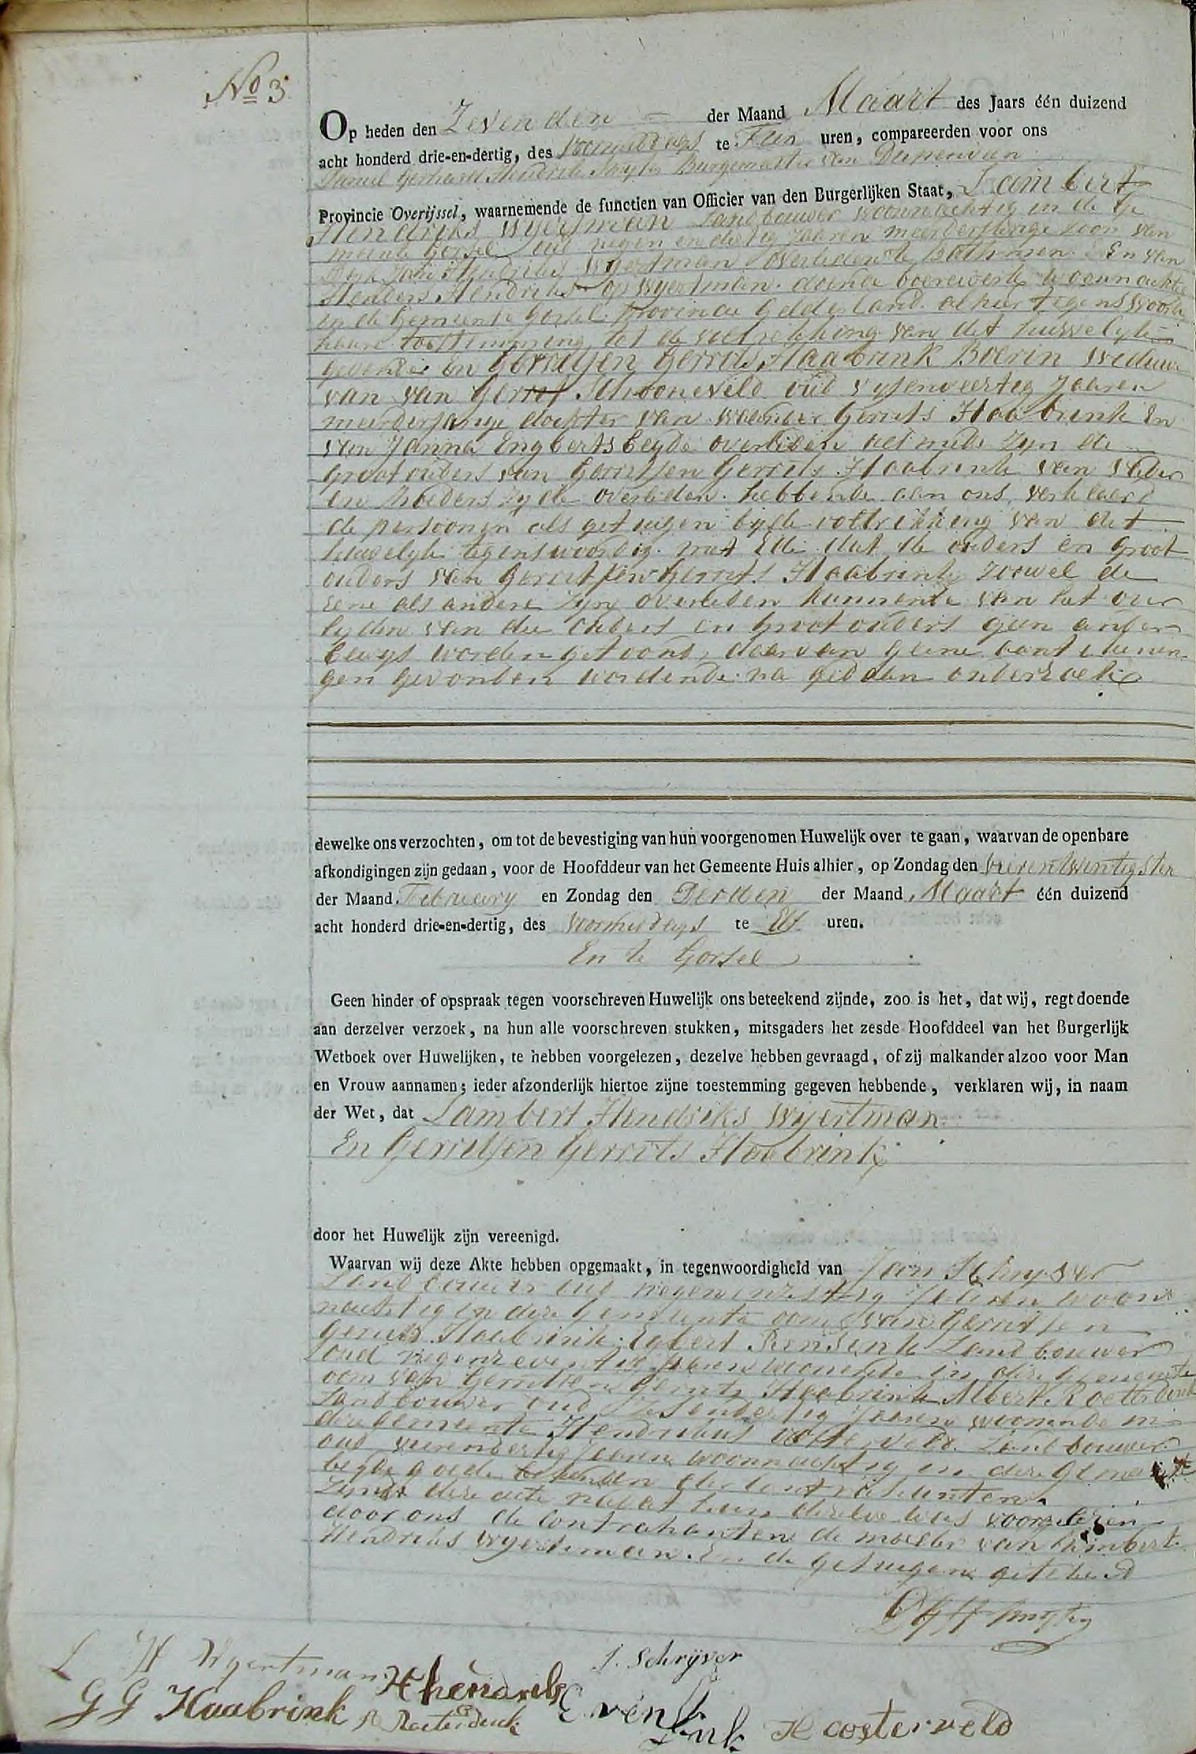 No 3
Op heden den Zevenden der Maand Maart des Jaars één duizend
acht honderd drie-en-dertig, des voormiddags te Tien uren, compareerden voor ons
Burgemeester van Diepenveen
Provincie Overijssel, waarnemende de functien van Officier van den Burgerlijken Staat, Lambert
Hendriks Wyertman Landbouwer woonachtig in de Ge
meente Gorsel oud negen en dertig Jaaren meerderjarige zoon van
Wyertman overleden te Bathmen En van
Hendriks op Wyertman boerewerk woonacht
in de Gemeente Gorsel Provincie Gelderland alhier tegenswoordig
haare toestemming tot de voltrekking van dit huwelyk
gevende En Gerritjen Gerrits Haabrink Boerin weduwe
van van Gerrit Schooneveld oud vyfenveertig Jaaren
meerderjarige dochter van Gerrits Haabrink En
van Janna Engberts beyde overleden als mede zyn de
grootouders van Gerritjen Gerrits Haabrink van vader
en Moeders zyde overleden hebbende aan ons verklaard
de persoonen als getuigen byde voltrekking van dit
huwelyk tegenswoordig met Ede dat de ouders en groot
ouders van Gerritjen Gerrits Haabrink zoowel de
eene als andere zyn overleden kunnende van het over
lyden van die ouders en grootouders geen ander
bewys worden getoond, daarvan geene aant
gen gevonden wordende na gedaan onderzoek
dewelke ons verzochten, om tot de bevestiging van hun voorgenomen Huwelijk over te gaan, waarvan de openbare
afkondigingen zijn gedaan, voor de Hoofddeur van het Gemeente Huis alhier, op Zondag den vierentwintigsten
der Maand February en Zondag den Derden der Maand Maart één duizend
acht honderd drie-en-dertig, des voormiddags te Elf uren.
En te Gorsel
Geen hinder of opspraak tegen voorschreven Huwelijk ons beteekend zijnde, zoo is het, dat wij, regt doende
aan derzelver verzoek, na hun alle voorschreven stukken, mitsgaders het zesde Hoofddeel van het Burgerlijk
Wetboek over Huwelijken, te hebben voorgelezen, dezelve hebben gevraagd, of zij malkander alzoo voor Man
en Vrouw aannamen; ieder afzonderlijk hiertoe zijne toestemming gegeven hebbende, verklaren wij, in naam
der Wet, dat Lambert Hendriks Wyertman
En Gerritjen Gerrits Haabrink
door het Huwelijk zijn vereenigd.
Waarvan wij deze Akte hebben opgemaakt, in tegenwoordigheid van Jan Schryver
Landbouwer oud negenenzestig Jaaren woon
nachtig in dese Gemeente oom van Gerritjen
Gerrits Haabrink Egbert Landbouwer
oud Jaaren woonende in dese gemeente
oom van Gerritjen Gerrits Haabrink Albert Roetterdink
Landbouwer oud Jaaren woonende in
dese gemeente Hendrikus Oosterveld Landbouwer
oud vierendertig Jaaren woonachtig in dese Gemeente
beyde goede bekenden der Contrahenten
Zynde dese acte nadat hun dezelve was voorgelezen
door ons de Contrahanten de moeder van Lambert
Hendriks Wyertman En de getuigen geteekend
L H Wyertman
J. Schrijver
G G Haabrink
H hendriks
H oosterveld